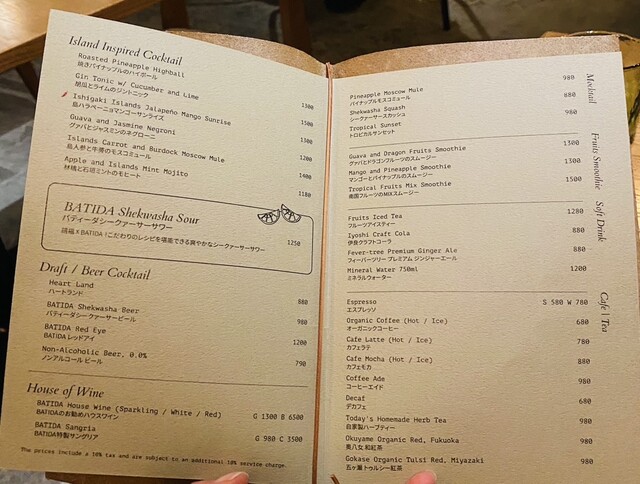 Island Inspired Cocktail
Roasted Pineapple Highball 1300
焼きパイナップルのハイボール
Gin Tonic w/ Cucumber and Lime 1500
胡瓜とライムのジントニック
Ishigaki Islands Jalapeño Mango Sunrise 1300
島ハラペーニョマンゴーサンライズ
Guava and Jasmine Negroni 1200
グァバとジャスミンのネグローニ
Islands Carrot and Burdock Moscow Mule 1400
島人参と牛蒡のモスコミュール
Apple and Islands Mint Mojito 1180
林檎と石垣ミントのモヒート
BATIDA Shekwasha Sour
バティーダシークァーサーサワー
請福 X BATIDA！こだわりのレシピを堪能できる爽やかなシークァーサーサワー 1250
Draft / Beer Cocktail
Heart Land 880
ハートランド
BATIDA Shekwasha Beer 980
バティーダシークァーサービール
BATIDA Red Eye 1200
BATIDA レッドアイ
Non-Alcoholic Beer, 0.0% 790
ノンアルコール ビール
House of Wine
BATIDA House Wine (Sparkling / White / Red) G 1300 B 6500
BATIDAのお勧めハウスワイン
BATIDA Sangria G 980 C 3500
BATIDA特製サングリア
The prices include a 10% tax and are subject to an additional 10% service charge.
Mocktail
Pineapple Moscow Mule 980
パイナップルモスコミュール
Shekwasha Squash 880
シークァーサースカッシュ
Tropical Sunset 960
トロピカルサンセット
Fruits Smoothie
Guava and Dragon Fruits Smoothie 1300
グァバとドラゴンフルーツのスムージー
Mango and Pineapple Smoothie 1300
マンゴーとパイナップルのスムージー
Tropical Fruits Mix Smoothie 1500
南国フルーツのMIXスムージー
Soft Drink
Fruits Iced Tea 1280
フルーツアイスティー
Iyoshi Craft Cola 880
伊良クラフトコーラ
Fever-tree Premium Ginger Ale 880
フィーバーツリー プレミアム ジンジャーエール
Mineral Water 750ml 1200
ミネラルウォーター
Cafe \ Tea
Espresso S 580 W 780
エスプレッソ
Organic Coffee (Hot / Ice) 680
オーガニックコーヒー
Cafe Latte (Hot / Ice) 780
カフェラテ
Cafe Mocha (Hot / Ice) 880
カフェモカ
Coffee Ade 980
コーヒーエイド
Decaf 680
デカフェ
Today's Homemade Herb Tea 980
自家製ハーブティー
Okuyame Organic Red, Fukuoka 980
奥八女 和紅茶
Gokase Organic Tulsi Red, Miyazaki 980
五ヶ瀬 トゥルシー紅茶